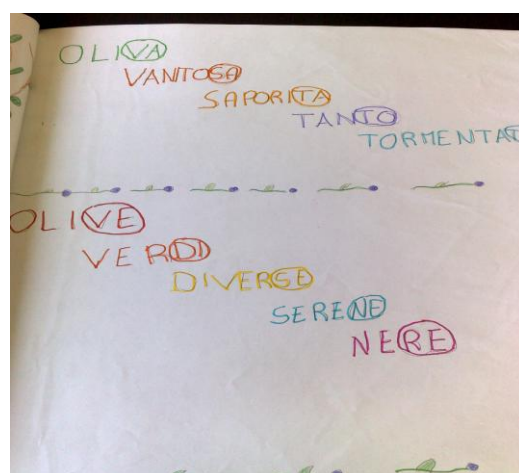 OLIVA
VANTOSA
SAPORITA
TANTO
OLIVE
VERDI
DIVERSE
SERENE
NERE